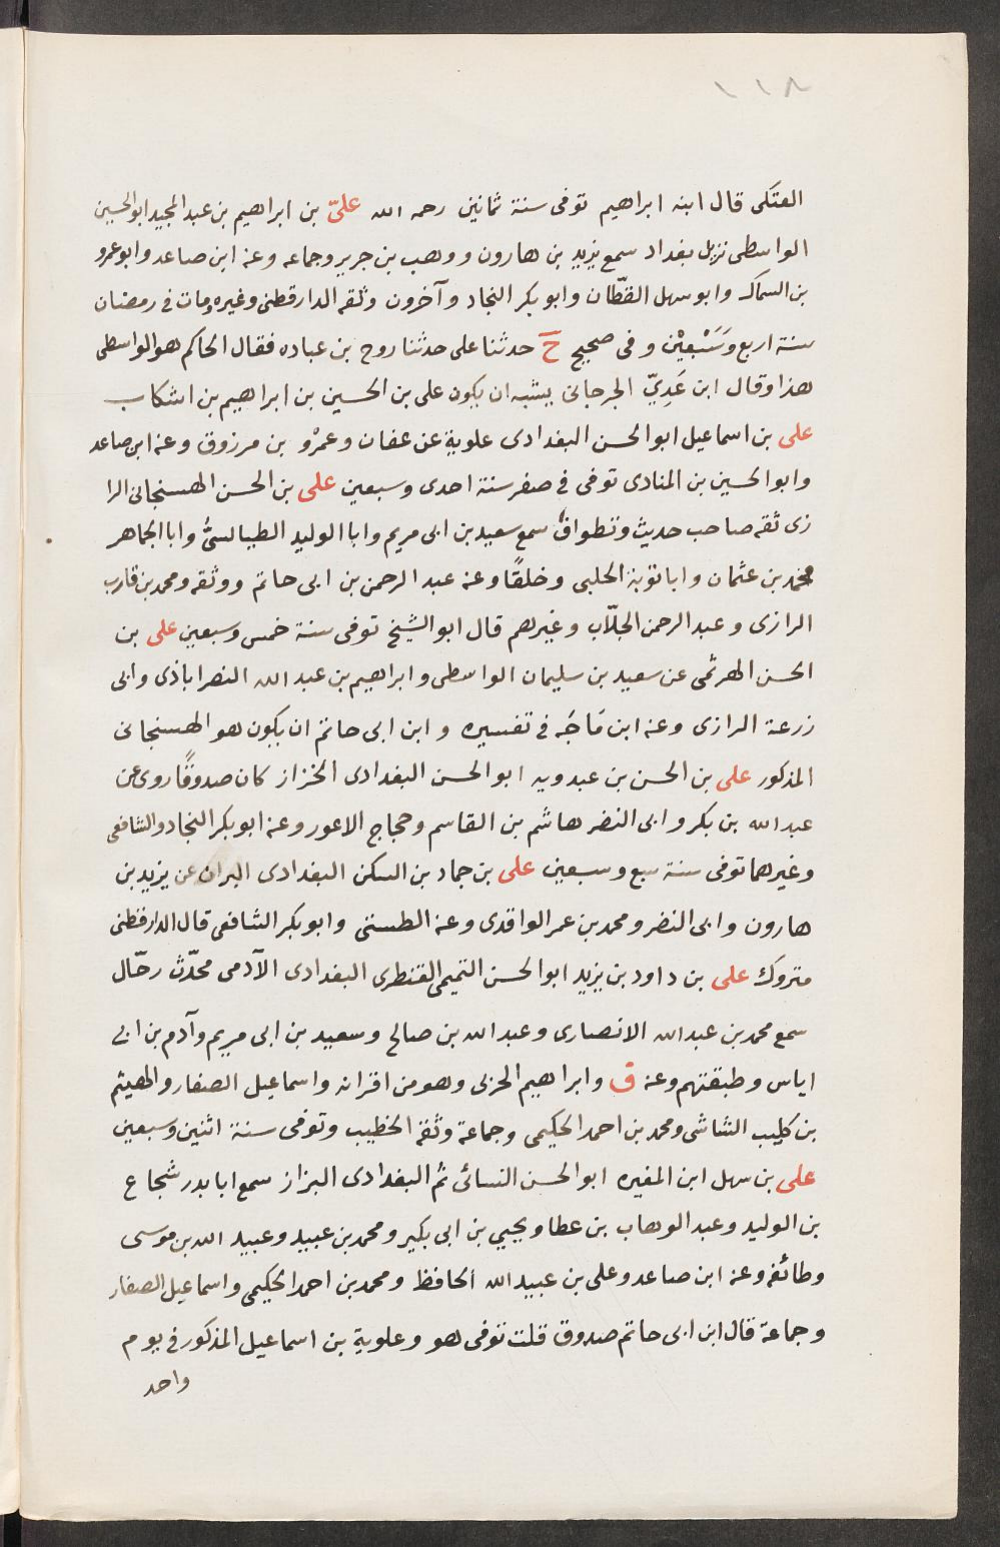 ١١٨
العتكى قال ابنه ابراهيم توفى سنة ثمانين رحمه الله علىّ بن ابراهيم بن عبد المجيد ابو الحسين
الواسطى نزيل بغداد سمع يزيد بن هارون ووهب بن جرير وجماعه وعنه ابن صاعد وابو عمرو
بن السماك وابو سهل القطّان وابو بكر النجاد وآخرون وثقه الدارقطنى وغيره ومات فى رمضان
سنة اربع وسَبْعيْن وفى صحيح خ حدثنا على حدثنا روح بن عباده فقال الحاكم هو الواسطى
هذا وقال ابن عَدِيّ الجرجانى يشبه ان يكون على بن الحسين بن ابراهيم بن اشكاب
على بن اسماعيل ابو الحسن البغدادى علوية عن عفان وعمرْو بن مرزوق وعنه ابن صاعد
وابو الحسين بن المنادى توفى فى صفر سنة احدى وسبعين على بن الحسن الهسنجانى الرا
زى ثقه صاحب حديث وتطواف سمع سعيد بن ابى مريم وابا الوليد الطيالسىُّ وابا الجماهر
محمد بن عثمان وابا توبة الحلبى وخلقًا وعنه عبد الرحمن بن ابى حاتم ووثقه ومحمد بن قارب
الرازى وعبد الرحمن الجلّاب وغيرهم قال ابو الشيخ توفى سنة خمس وسبعين على بن
الحسن الهرثمى عن سعيد بن سليمان الواسطى وابراهيم بن عبد الله النصراباذى وابى
زرعة الرازى وعنه ابن مَاجَه فى تفسيره وابن ابى حاتم ان يكون هو الهسنجانى
المذكور على بن الحسن بن عبدويه ابو الحسن البغدادى الخزاز كان صدوقًا روى عن
عبد الله بن بكر وابى النضر هاشم بن القاسم وحجاج الاعور وعنه ابو بكر النجاد والشافعى
وغيرهما توفى سنة سبع وسبعين على بن حماد بن السكن البغدادى البزان عن يزيد بن
هارون وابى النضر ومحمد بن عمر الواقدى وعنه الطستى وابو بكر الشافعى قال الدارقطنى
متروك على بن داود بن يزيد ابو الحسن التميمى القنطرى البغدادى الآدمى محدّث رحّال
سمع محمد بن عبد الله الانصارى وعبد الله بن صالح وسعيد بن ابى مريم وآدم بن ابى
اياس وطبقتهم وعنه ق وابراهيم الحربى وهو من اقرانه واسماعيل الصفار والهيثم
بن كليب الشاشى ومحمد بن احمد الحكيمى وجماعة وثقه الخطيب وتوفى سنة اثنين وسبعين
على بن سهل ابن المغيره ابو الحسن النسائى ثم البغدادى البزاز سمع ابا بدر شجاع
بن الوليد وعبد الوهاب بن عطا ويحيى بن ابى بكير ومحمد بن عبيد وعبيد الله بن موسى
وطائفه وعنه ابن صاعد وعلى بن عبيد الله الحافظ ومحمد بن احمد الحكيمى واسماعيل الصفار
وجماعة قال ابن ابى حاتم صدوق قلت توفى هو وعلوية بن اسماعيل المذكور فى يوم
واحد